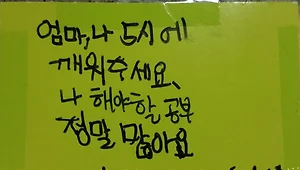 엄마, 나 5시에
깨워주세요、
나 해야할 공부
정말 많아요